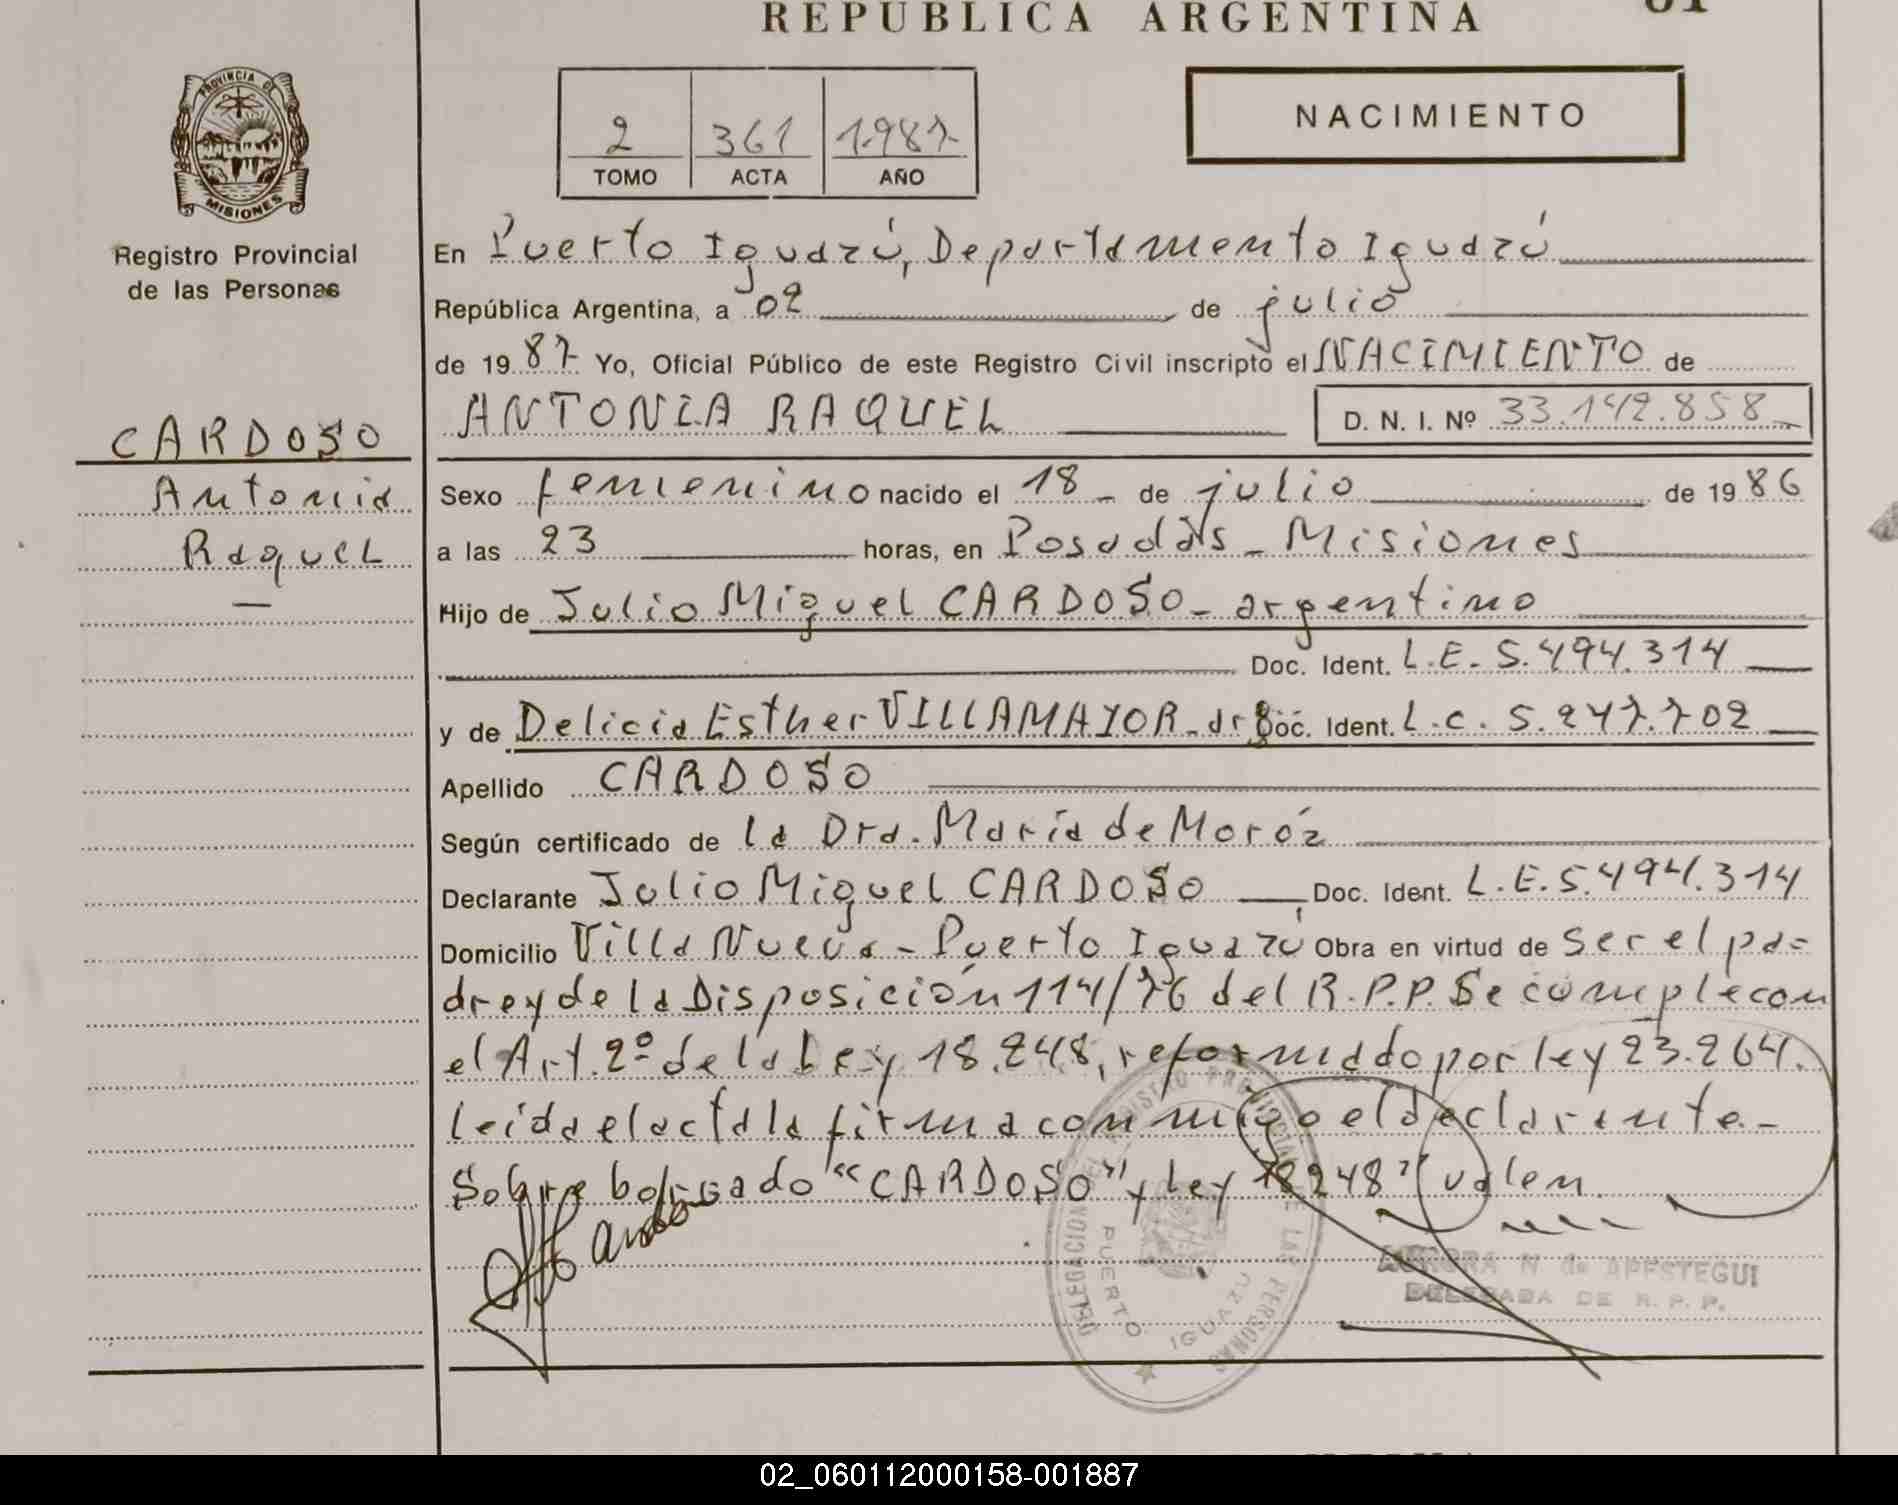 REPUBLICA ARGENTINA
PROVINCIA DE
MISIONES
Registro Provincial
de las Personas
2 361 1987
TOMO ACTA AÑO
NACIMIENTO
En Puerto Iguazú, Departamento Iguazú
República Argentina, a 02 de julio
de 1987 Yo, Oficial Público de este Registro Civil inscripto el NACIMIENTO de
ANTONIA RAQUEL D. N. I. Nº 33.142.858
CARDOSO
Antonia
Raquel
Sexo femenino nacido el 18 de julio de 1986
a las 23 horas, en Posadas - Misiones
Hijo de Julio Miguel CARDOSO - argentino
Doc. Ident. L.E. 5.494.314
y de Delicia Esther VILLAMAYOR - arg. Doc. Ident. L.C. 5.247.702
Apellido CARDOSO
Según certificado de la Dra. María de Moróz
Declarante Julio Miguel CARDOSO Doc. Ident. L.E. 5.494.314
Domicilio Villa Nueva - Puerto Iguazú Obra en virtud de ser el pa=
dre y de la Disposición 114/76 del R.P.P. Se cumple con
el Art. 2º de la Ley 18.248, reformado por ley 23.264.
Leída el acta la firma conmigo el declarante.-
Sobre borrado "CARDOSO" y Ley 18248" valen.
Cardoso
DELEGACION DEL REGISTRO PROVINCIAL DE LAS PERSONAS
PUERTO IGUAZU
AURORA N de APESTEGUI
DELEGADA DE R. P. P.
02_060112000158-001887